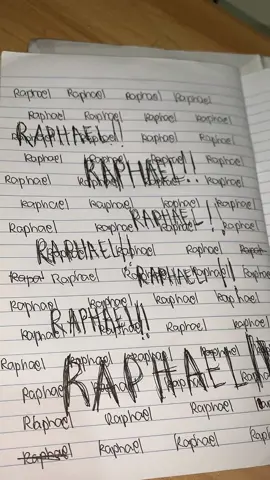 Raphael Raphael Raphael Raphael
Raphael Raphael Raphael Raphael
RAPHAEL!! Raphael Raphael
Raphael Raphael Raphael Raphael
RAPHAEL!!
Raphael Raphael Raphael
Raphael Raphael Raphael Raphael
RAPHAEL!!
Raphael Raphael Raphael
RAPHAEL!! Raphael Raphael
Raphael Raphael
RAPHAEL!!
Raphael Raphael Raphael Raphael
RAPHAEL!!
Raphael Raphael Raphael Raphael
Raphael Raphael Raphael Raphael
RAPHAEL!!
Raphael Raphael Raphael
Raphael Raphael Raphael
Raphael Raphael Raphael